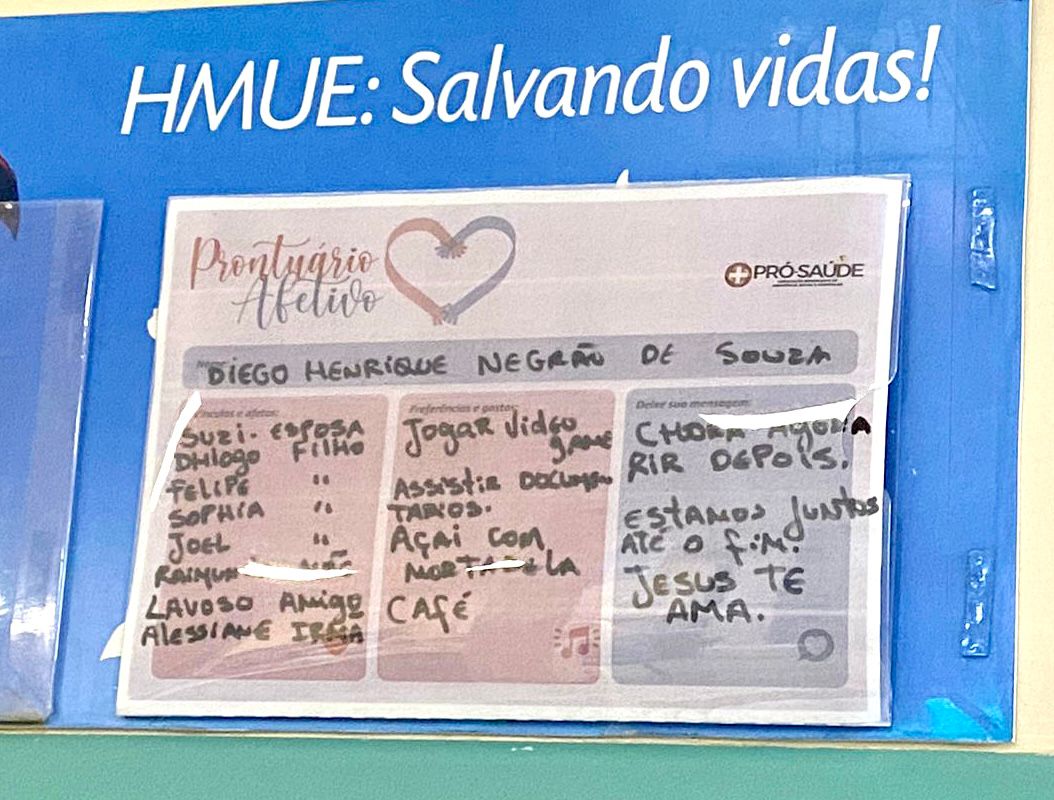 HMUE: Salvando vidas!
Prontuário
Afetivo
PRÓ-SAÚDE
DIEGO HENRIQUE NEGRÃO DE SOUZA
Vínculos e afetos:
SUZI. ESPOSA
DHIOGO FILHO
FELIPE "
SOPHIA "
JOEL "
LAVOSO AMIGO
ALESSIANE IRMÃ
Preferências e gostos:
JOGAR VIDEO
GAME
ASSISTIR DOCUMEN
TARIOS.
AÇAI COM
MORTADELA
CAFÉ
Deixe sua mensagem:
CHORA AGORA
RIR DEPOIS.
ESTAMOS JUNTOS
ATÉ O FIM.
JESUS TE
AMA.